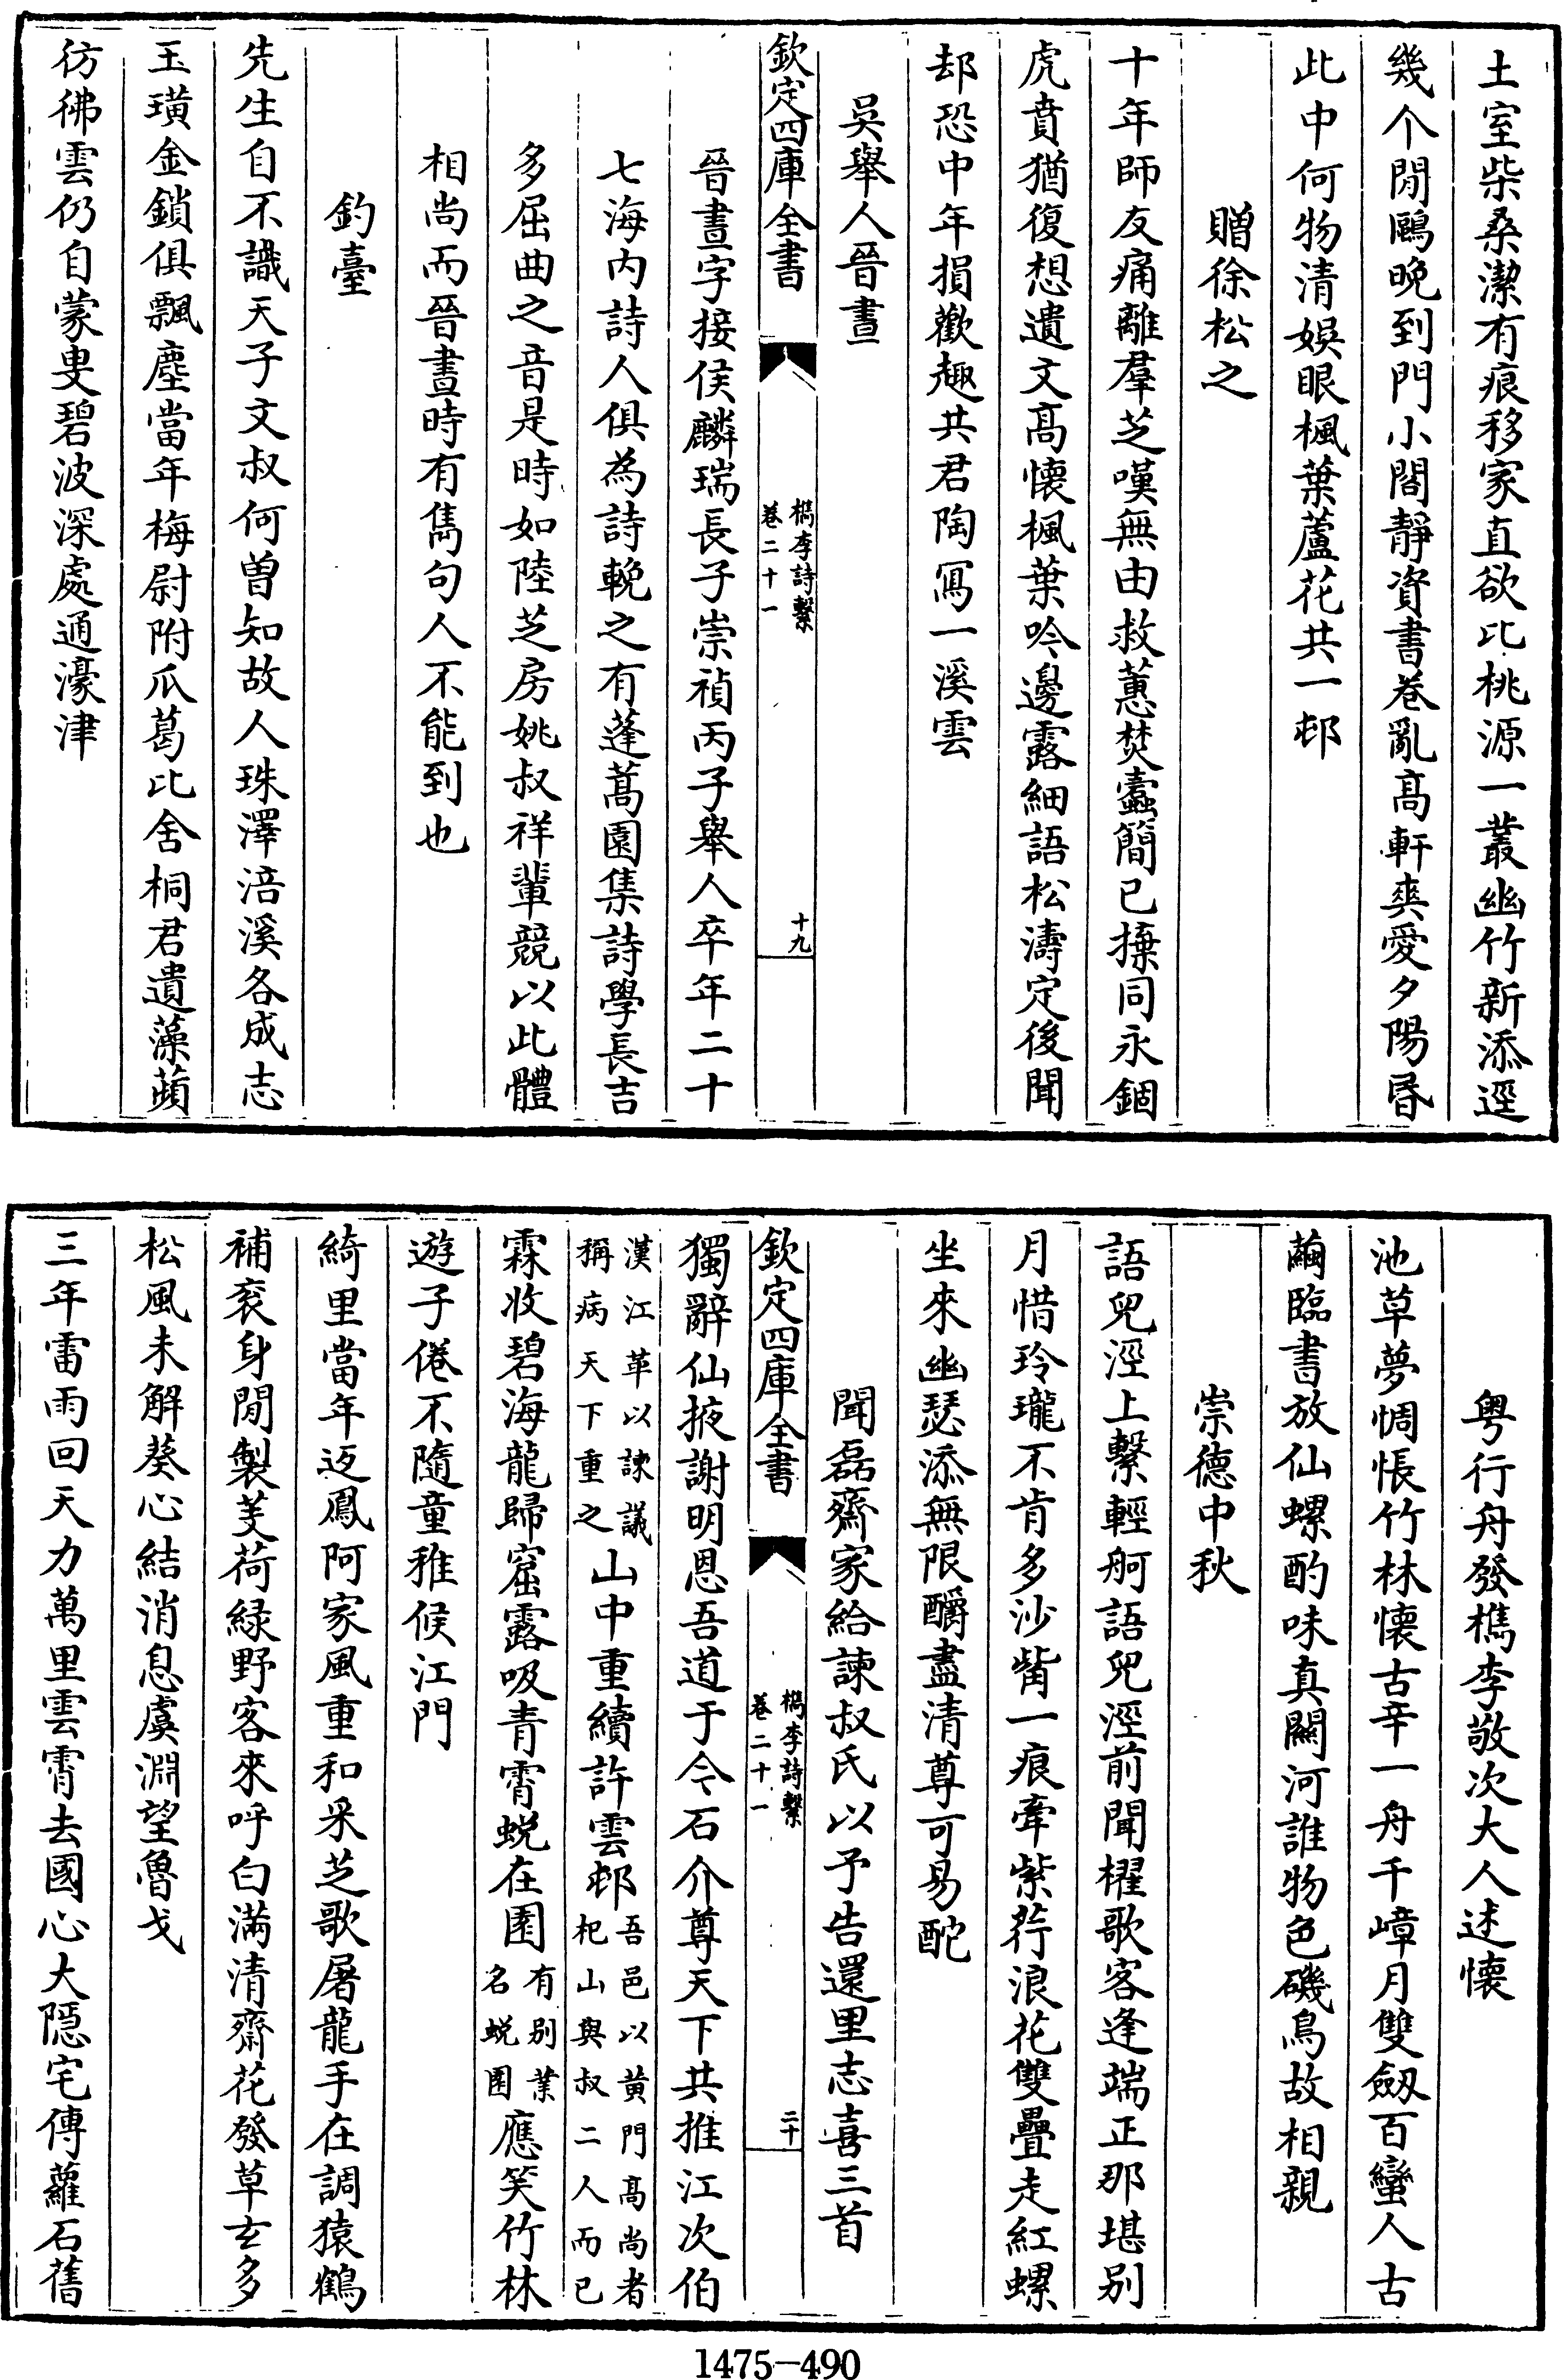 土室柴桑潔有痕移家直欲比桃源一叢幽竹新添逕
幾个閒鷗晚到門小閣靜資書卷亂髙軒爽愛夕陽昏
此中何物清娱眼楓葉蘆花共一邨
贈徐松之
十年師友痛離羣芝嘆無由救蕙焚蠹簡已㨗同永錮
虎賁猶復想遺文髙懐楓葉吟邊露細語松濤定後聞
却恐中年損歡趣共君陶冩一溪雲
吳舉人晉晝
欽定四庫全書
檇李詩繫
卷二十一
十九
晉晝字接侯麟瑞長子崇禎丙子舉人卒年二十
七海内詩人俱為詩輓之有蓬蒿園集詩學長吉
多屈曲之音是時如陸芝房姚叔祥輩競以此體
相尚而晉晝時有雋句人不能到也
釣臺
先生自不識天子文叔何曽知故人珠澤涪溪各成志
玉璜金鎖俱飄塵當年梅尉附瓜葛比舍桐君遺藻蘋
彷彿雲仍自蒙叟碧波深處通濠津
粤行舟發檇李敬次大人述懐
池草夢惆悵竹林懐古辛一舟千嶂月雙劔百蠻人古
繭臨書放仙螺酌味真關河誰物色磯鳥故相親
崇德中秋
語兒涇上繫輕舸語兒涇前聞櫂歌客逢端正那堪别
月惜玲瓏不肯多沙觜一痕牽紫荇浪花雙疊走紅螺
坐來幽瑟添無限釂盡清尊可易酡
聞磊齋家給諫叔氏以予告還里志喜三首
欽定四庫全書
檇李詩繫
卷二十一
二十
獨辭仙掖謝明恩吾道于今石介尊天下共推江次伯
漢江革以諫議
稱病天下重之
山中重續許雲邨
吾邑以黄門髙尚者
杞山與叔二人而已
霖收碧海龍歸窟露吸青霄蜕在園
有别業
名蜕園
應笑竹林
遊子倦不隨童稚候江門
綺里當年返鳳阿家風重和采芝歌屠龍手在調猿鶴
補衮身閒製芰荷緑野客來呼白滿清齋花發草玄多
松風未解葵心結消息虞淵望魯戈
三年雷雨回天力萬里雲霄去國心大隠宅傳蘿石舊
1475—490